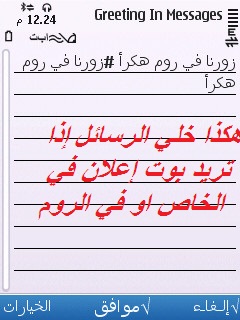 Greeting In Messages
12.24 م
ابت
زورنا في روم هكرأ #زورنا في روم
هكرأ
هكذا خلي الرسائل إذا
تريد بوت إعلان في
الخاص او في الروم
√إلـغـاء √مـوافـق الخيارات